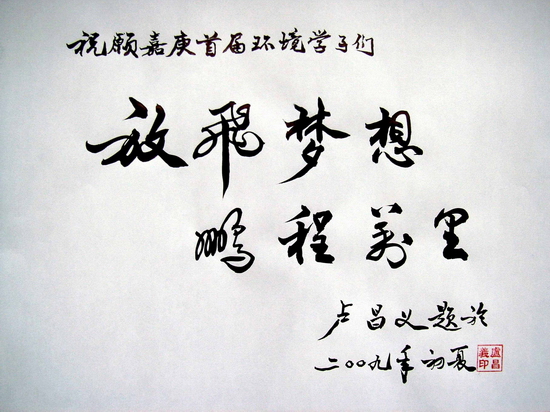 祝愿嘉庚首届环境学子们
放飛梦想
鹏程萬里
卢昌义题於
二〇〇九年初夏
盧昌義印